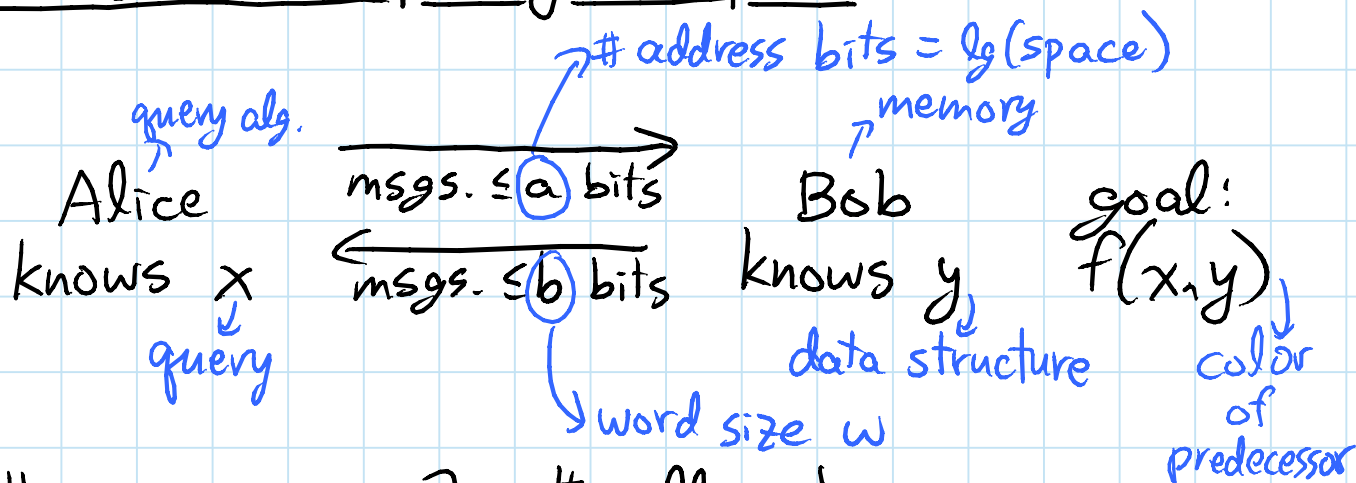 # address bits = lg(space)
query alg.
memory
Alice
msgs. ≤ a bits
Bob
goal:
knows x
msgs. ≤ b bits
knows y
f(x,y)
query
data structure
color
of
predecessor
word size w